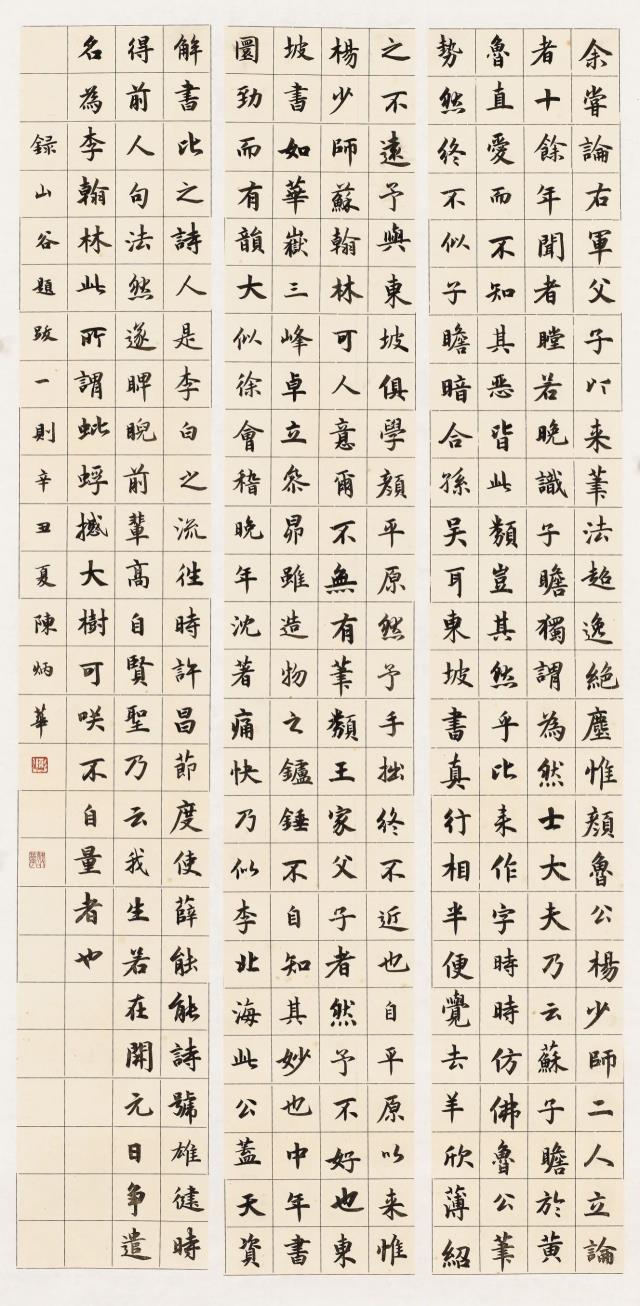 余嘗論右軍父子以来筆法超逸絶塵惟顔魯公楊少師二人立論
者十餘年聞者瞠若晚識子瞻獨謂為然士大夫乃云蘇子瞻於黄
魯直愛而不知其恶皆此類豈其然乎比来作字時時仿佛魯公筆
勢然終不似子瞻暗合孫吴耳東坡書真行相半便覺去羊欣薄紹
之不遠予與東坡俱學顔平原然予手拙終不近也自平原以来惟
楊少師蘇翰林可人意爾不無有筆類王家父子者然予不好也東
坡書如華嶽三峰卓立叅昴雖造物之鑪錘不自知其妙也中年書
圜勁而有韻大似徐會稽晚年沈著痛快乃似李北海此公蓋天資
解書比之詩人是李白之流徃時許昌節度使薛能能詩號雄健時
得前人句法然遂睥睨前輩高自賢聖乃云我生若在開元日争遣
名為李翰林此所謂蚍蜉撼大樹可咲不自量者也
録山谷題跋一則辛丑夏陳炳華